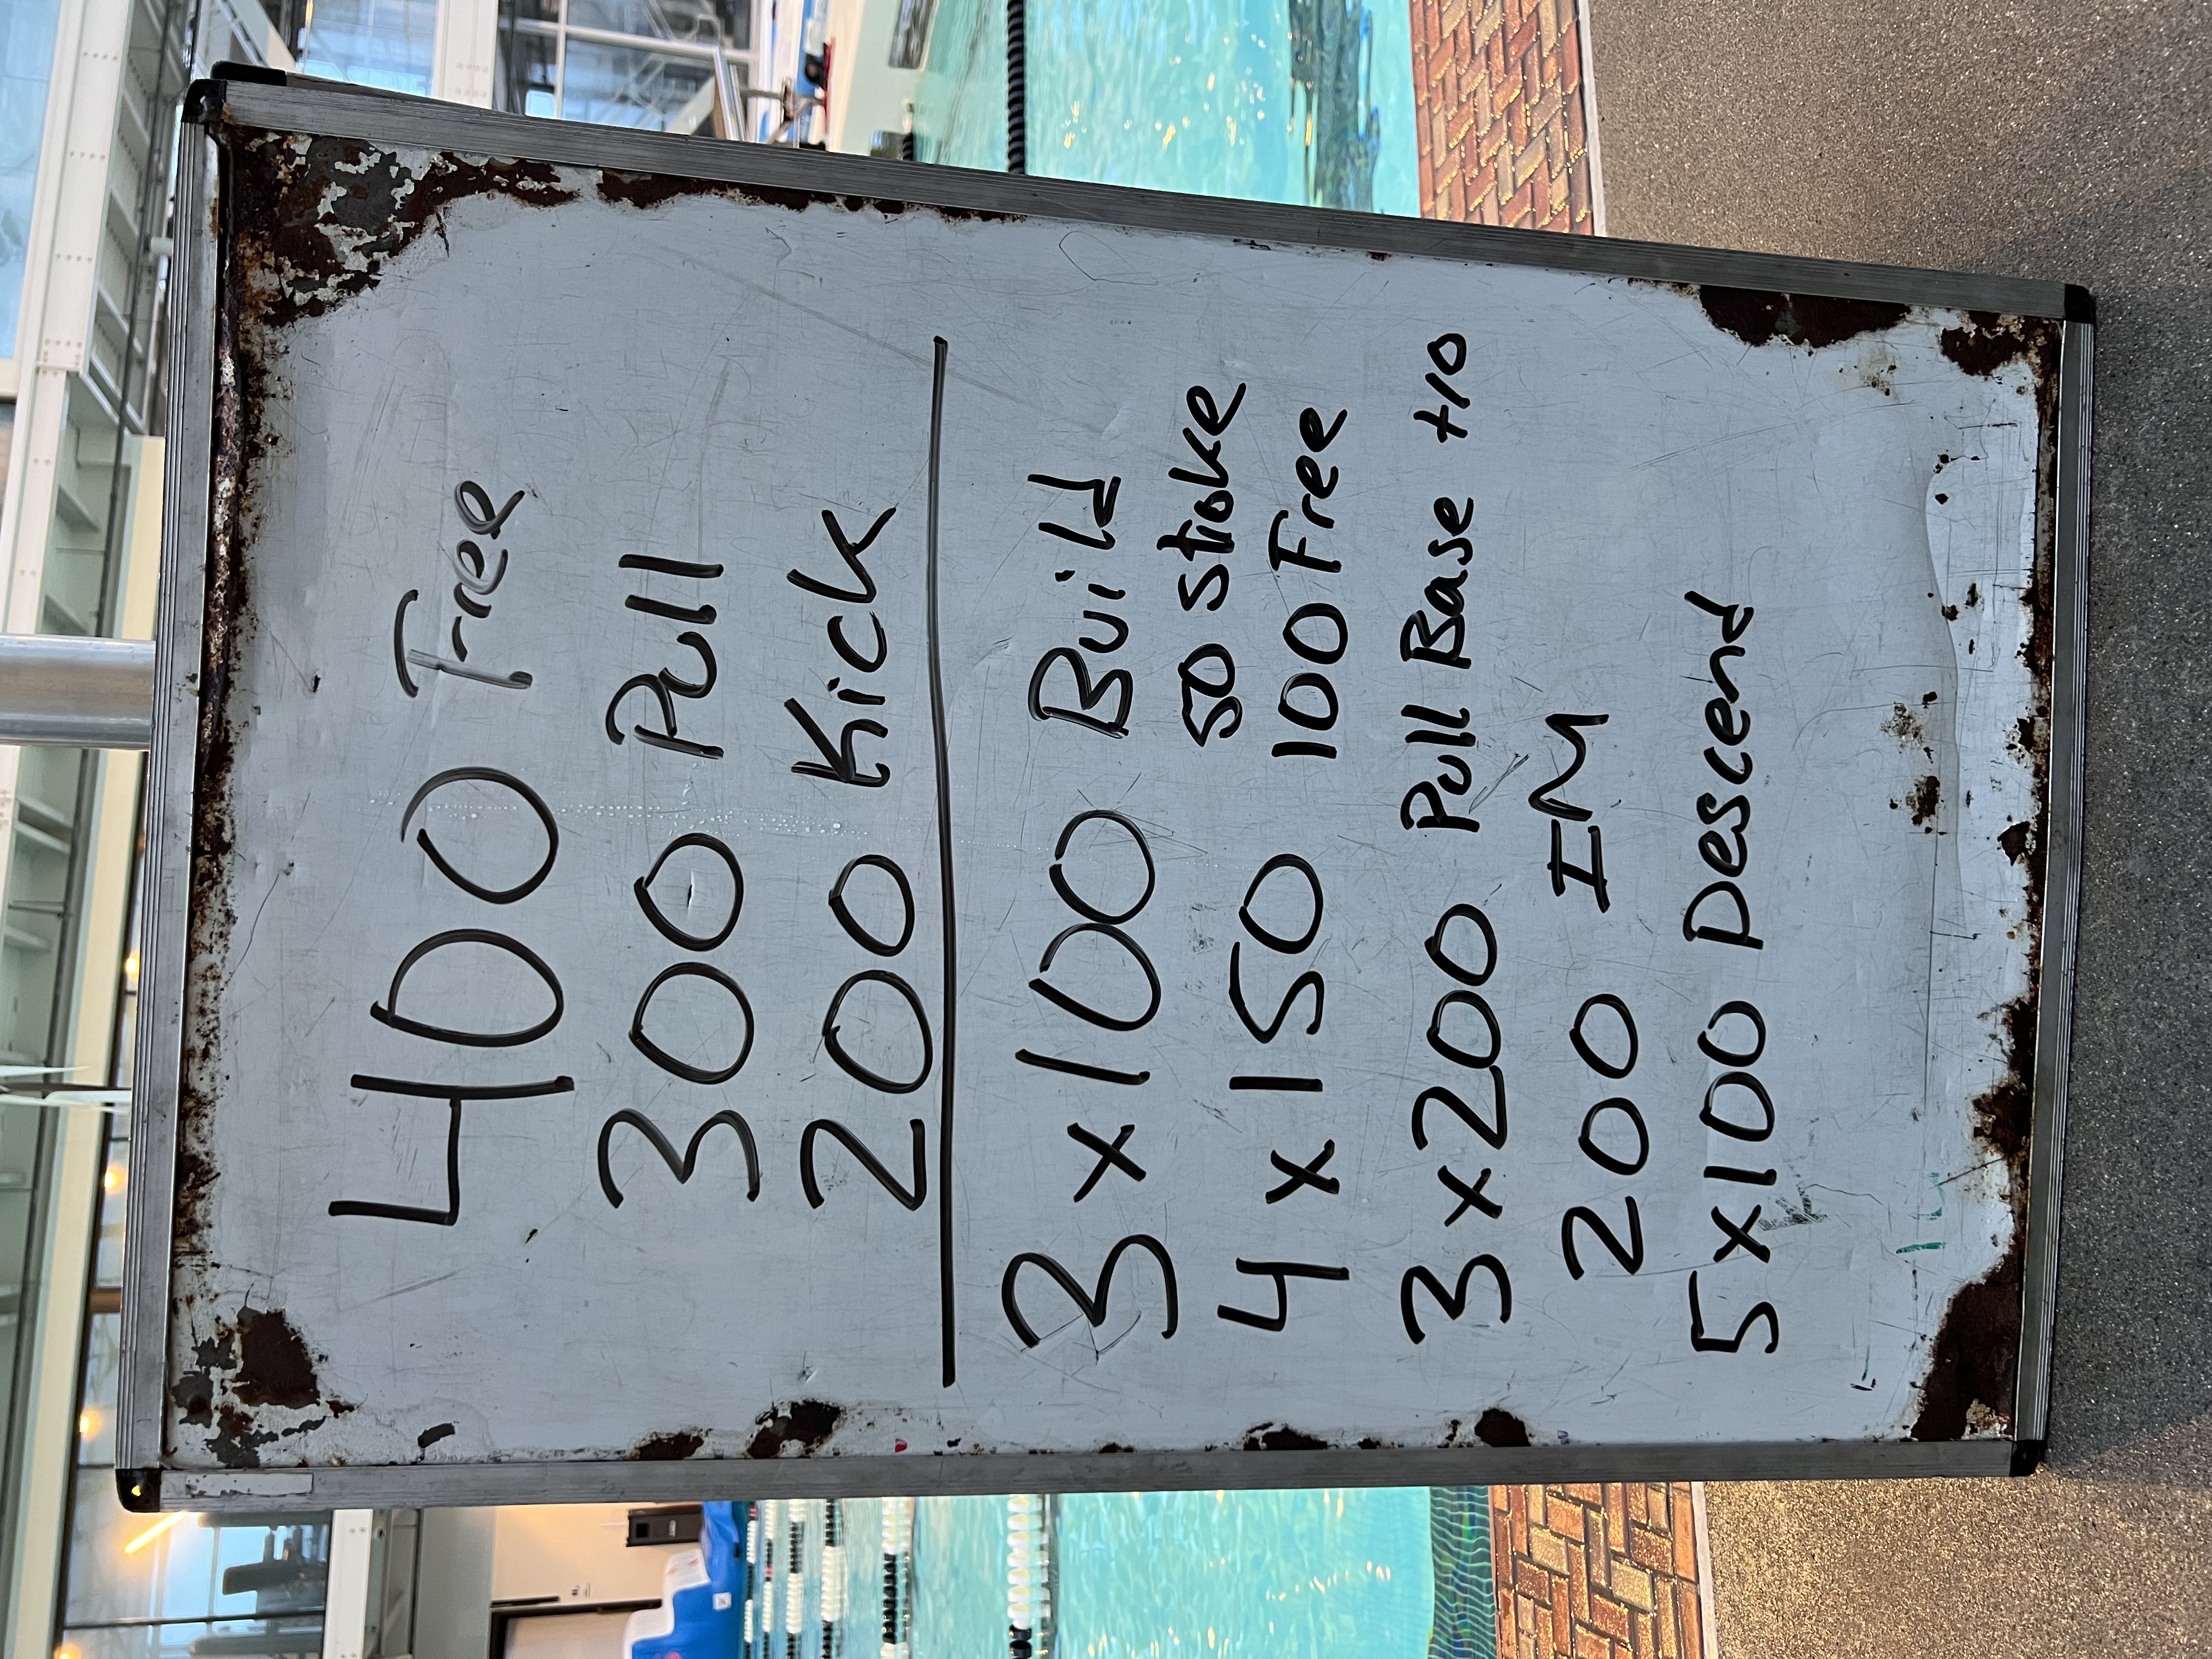 400 Free
300 Pull
200 Kick
3 x 100 Build
4 x 150 50 stroke
100 Free
3 x 200 Pull Base +10
200 IM
5 x 100 Descend